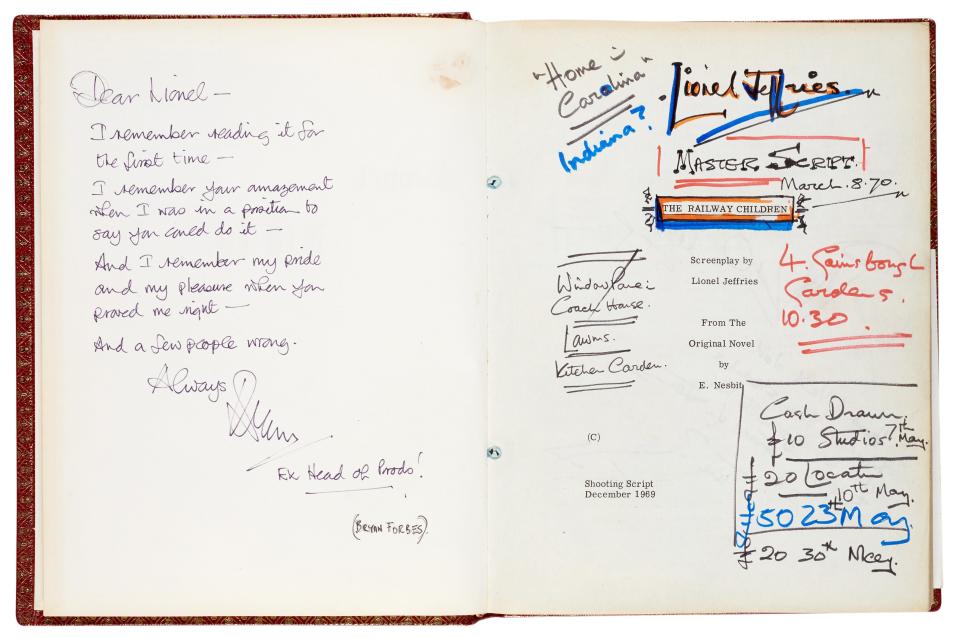 Dear Lionel —
I remember reading it for
the first time —
I remember your amazement
when I was in a position to
say you could do it —
And I remember my pride
and my pleasure when you
proved me right —
And a few people wrong.
Always
Ex Head of Prods!
(BRYAN FORBES)
"Home in
Carolina"
Indiana?
Lionel Jeffries.
MASTER SCRIPT.
March.8.70.
THE RAILWAY CHILDREN
Screenplay by
Lionel Jeffries
From The
Original Novel
by
E. Nesbit
4. Gainsborough
Gardens.
10.30.
Coach House.
Lawns.
Kitchen Garden.
(C)
Shooting Script
December 1969
Cash Drawn.
£10 Studios 7th May.
£20 Location
10th May.
50 23 May
£20 30th May.